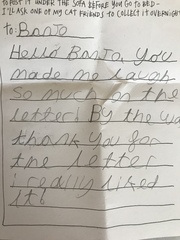 TO POST IT UNDER THE SOFA BEFORE YOU GO TO BED -
I'LL ASK ONE OF MY CAT FRIENDS TO COLLECT IT OVERNIGHT
to: BANJO
Hello Banjo, you
made me laugh
so much on the
letter! By the wa
thank you for
the letter
i really liked
it!